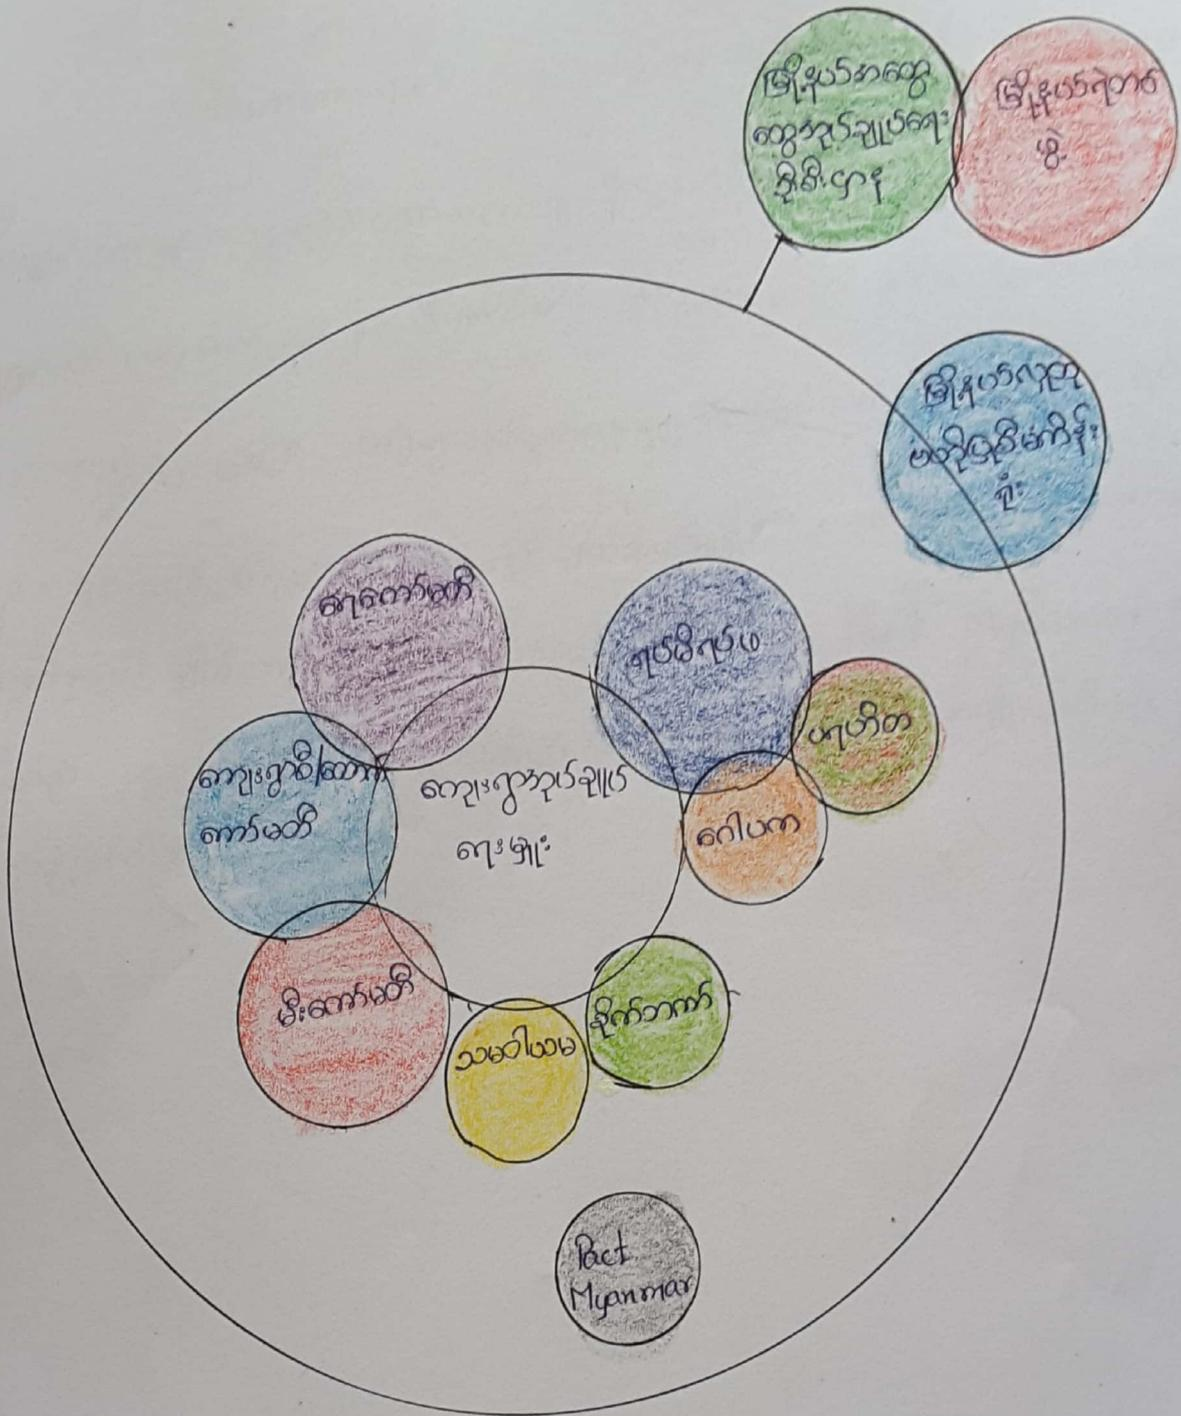 မြို့နယ်အထွေ
ထွေအုပ်ချုပ်ရေး
ဦးစီးဌာန
မြို့နယ်ရဲတပ်
ဖွဲ့
မြို့နယ်လူထု
ဗဟိုပြုစီမံကိန်း
ရုံး
ရေကော်မတီ
ရပ်မိရပ်ဖ
ပရဟိတ
ကျေးရွာစီ/ထောက်
ကော်မတီ
ကျေးရွာအုပ်ချုပ်
ရေးမှူး
ဂေါပက
မီးကော်မတီ
သမဝါယမ
စိုက်ဘဏ်
Pact
Myanmar